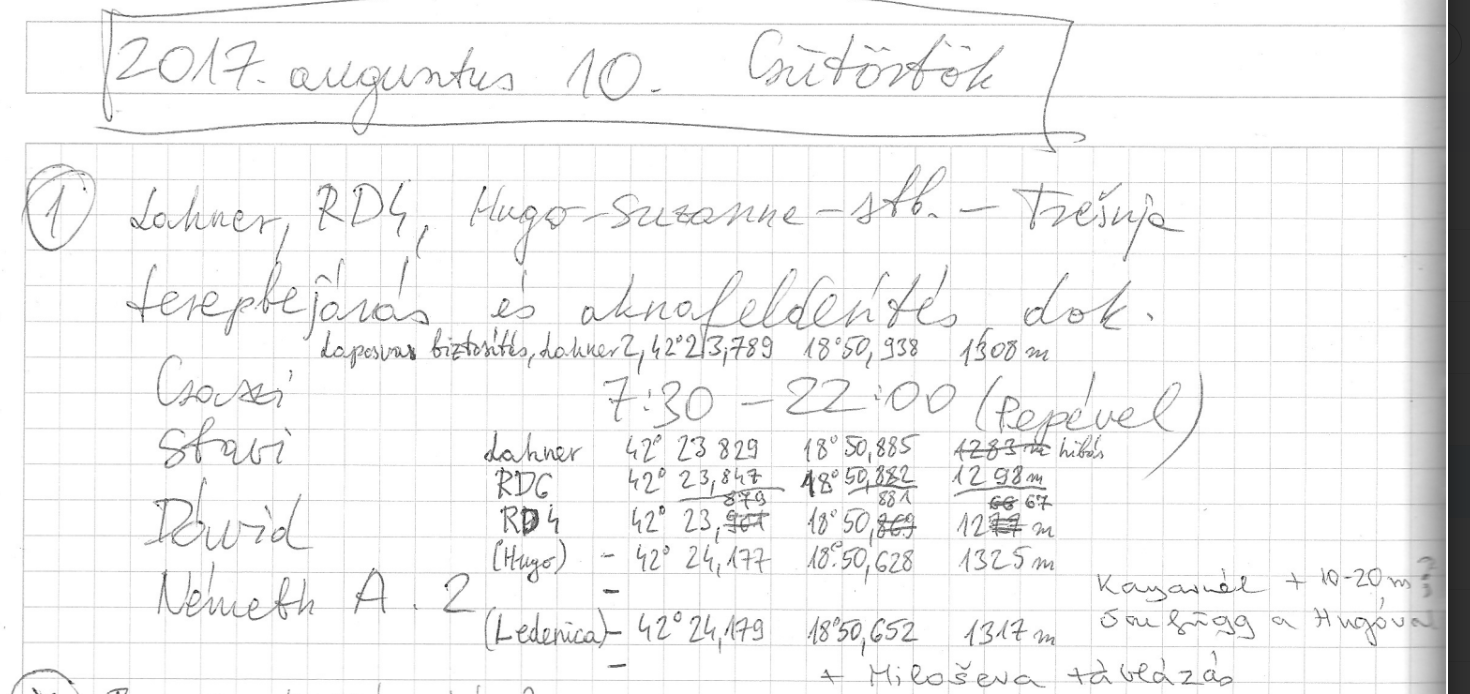 2017. augusztus 10. Csütörtök
① Lahner, RD4, Hugo-Suzanne-stb. - Trešnja
terepbejárás és aknafelderítés dok.
laposvas biztosítás, Lahner2, 42°23,789 18°50,938 1308 m
Csaszi 7:30 - 22:00 (Pepével)
Stavi Lahner 42° 23 829 18°50,885 1283 m hibás
RD6 42° 23,847 18°50,882 1298 m
879 881 66 67
Dávid RD4 42° 23,961 18°50,869 12 m
(Hugo) - 42° 24,177 18°50,628 1325 m
Németh A. 2 - Kanyarnál + 10-20 m
(Ledenica) - 42° 24,179 18°50,652 1317 m Összefügg a Hugóval
- + Miloševa táblázás